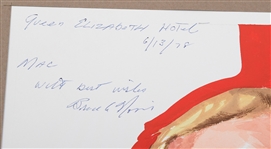 Queen Elizabeth Hotel
6/12/78
Mac
with best wishes